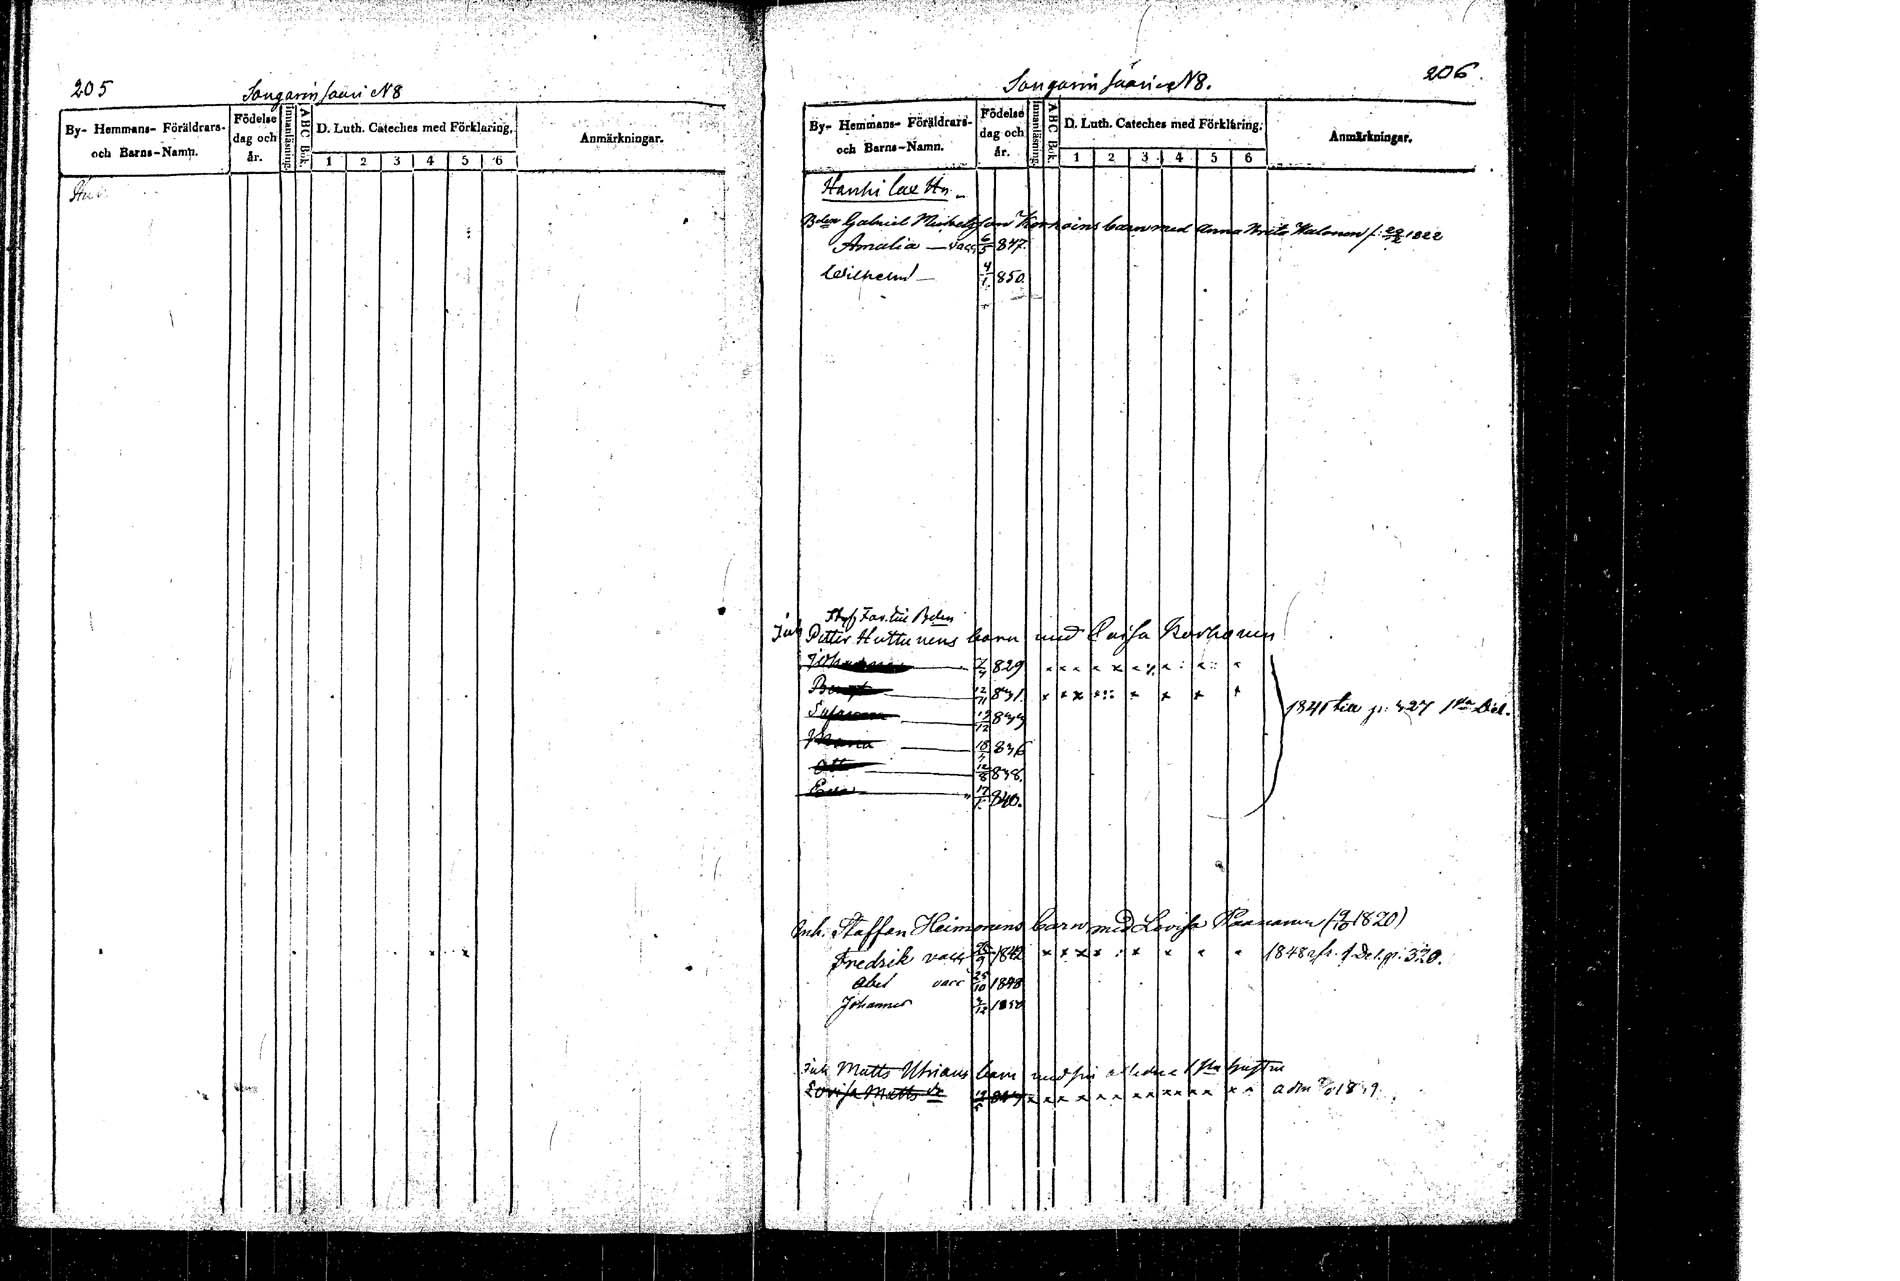 205
Songarin saari N8
By- Hemmans- Föräldrars-
och Barns-Namn.
Födelse
dag och
år.
Innanläsning.
ABC Bok.
D. Luth. Cateches med Förklaring.
1 2 3 4 5 6
Anmärkningar.
206.
Songarin saari N8.
By- Hemmans- Föräldrars-
och Barns-Namn.
Födelse
dag och
år.
Innanläsning.
ABC Bok.
D. Luth. Cateches med Förklaring.
1 2 3 4 5 6
Anmärkningar.
Hanhi lax Hn
Bdn Gabriel Michelsson Korhoins barn med Anna Brita Halonen f: 1822
Amalia — vacc 6/5 847.
Wilhelm — 4/1 850.
Inh Petter Huttunens barn med Caisa Korhonen
Johannes 829
Bengt 12/11 831.
Susanna 833
Johana 18 836
Otto 12/8 838.
Eva 17/1 840.
till p: 327 1sta Del.
Inh. Staffan Heimonens barn med Lovisa Paananen (9/10 1820)
Fredrik vacc 1842 1848 fr. 1 Del. p: 320.
Abel vacc 25/10 1848
Johannes 1850
Inh Matts barn med sin aflidna 1sta hustru
Lovisa Matts dr adm